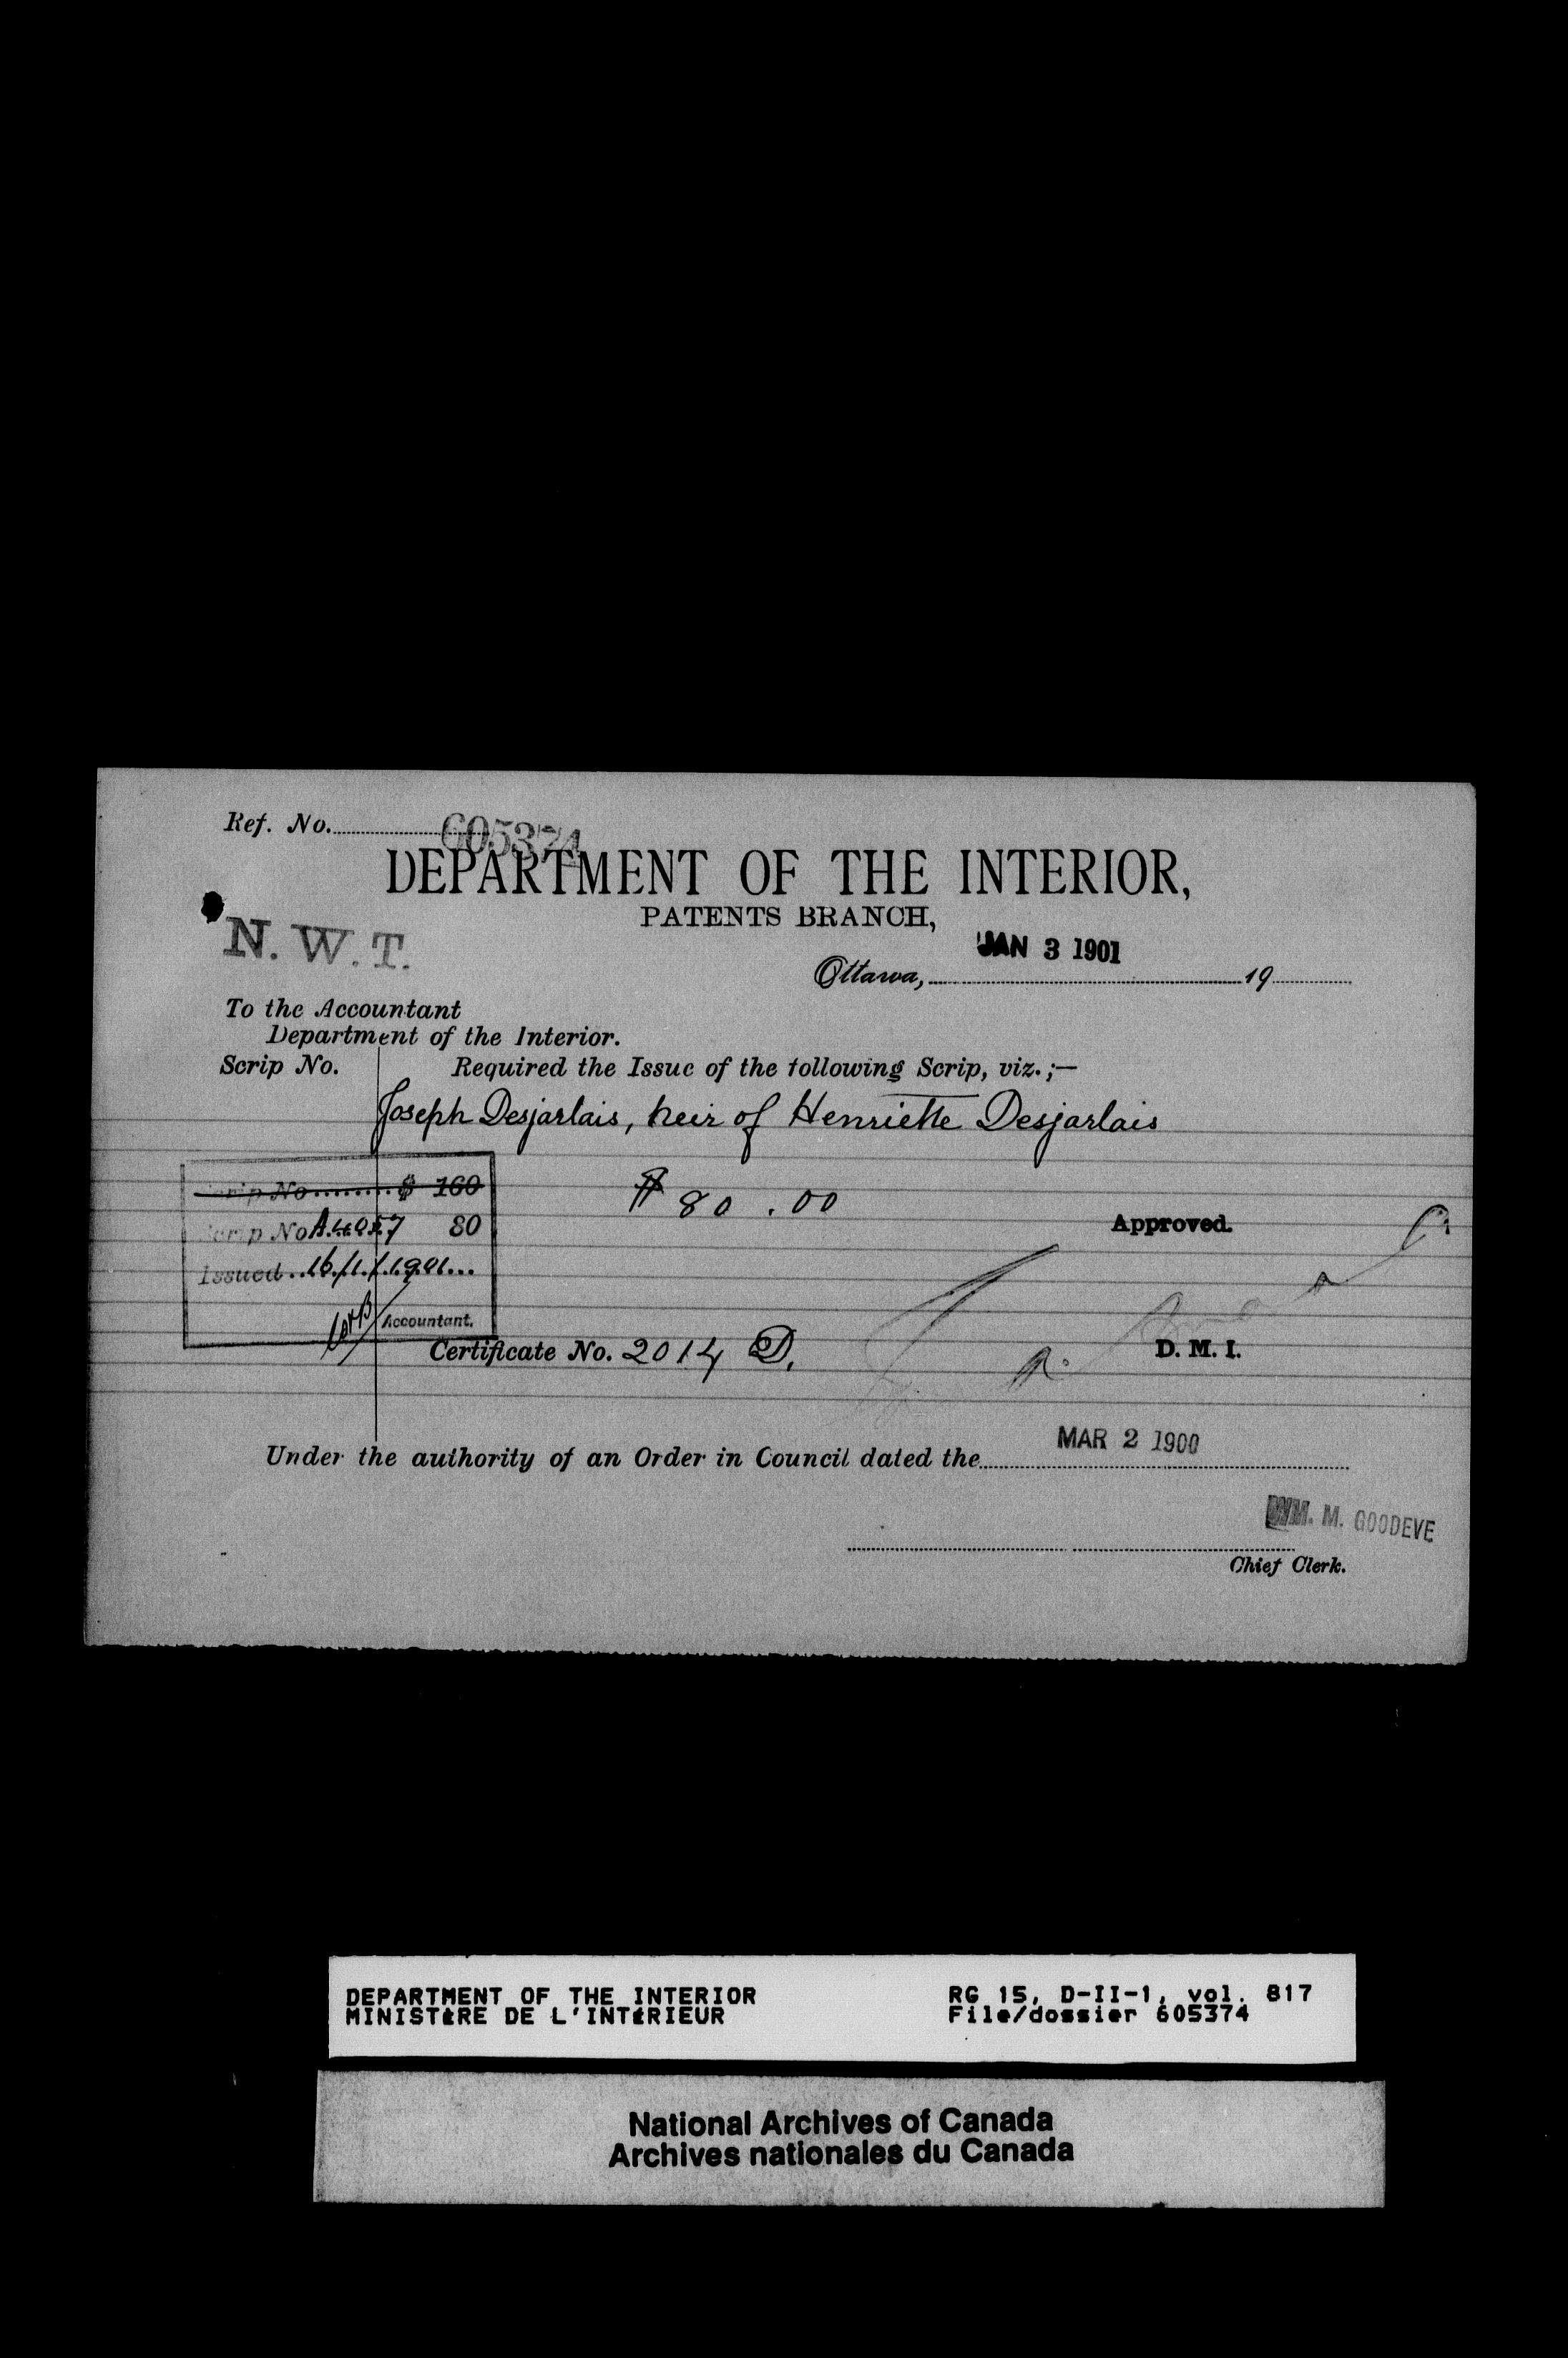 Ref. No. 605374
DEPARTMENT OF THE INTERIOR,
PATENTS BRANCH,
N. W. T.
JAN 3 1901
Ottawa, 19
To the Accountant
Department of the Interior.
Scrip No. Required the Issue of the following Scrip, viz.;—
Joseph Desjarlais, heir of Henriette Desjarlais
Scrip No. $ 160
$ 80.00
Scrip No 80
Approved.
Issued 16/1/1901
Accountant.
Certificate No. 2014 D.
D. M. I.
Under the authority of an Order in Council dated the MAR 2 1900
WM. M. GOODEVE
Chief Clerk.
DEPARTMENT OF THE INTERIOR RG 15, D-II-1, vol. 817
MINISTÈRE DE L'INTÉRIEUR File/dossier 605374
National Archives of Canada
Archives nationales du Canada